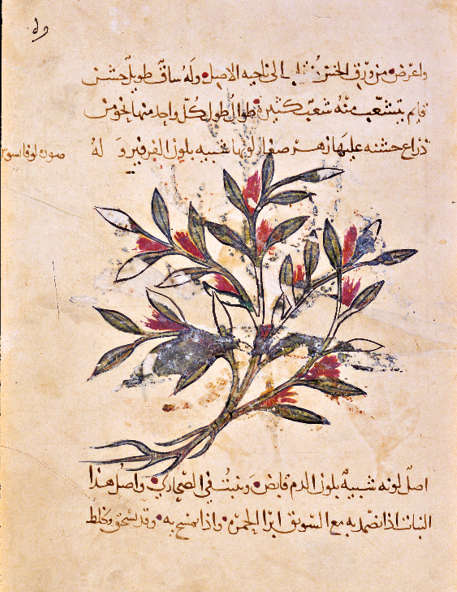 واعرض من ورق الخس الى ناحيه الاصل وله ساق طويل خشن
قايم يتشعب منه شعب كثيره طوال طول كل واحد منها نحو من
ذراع خشنه عليها زهر صغار لونها شبيه بلون الفرفير وله
اصل لونه شبيه بلون الدم قابض وينبت في الصحاري واصل هذا
النبات اذا تضمد به مع السويق ابرا الحمره واذا تمسح به وقد يسحق ويخلط